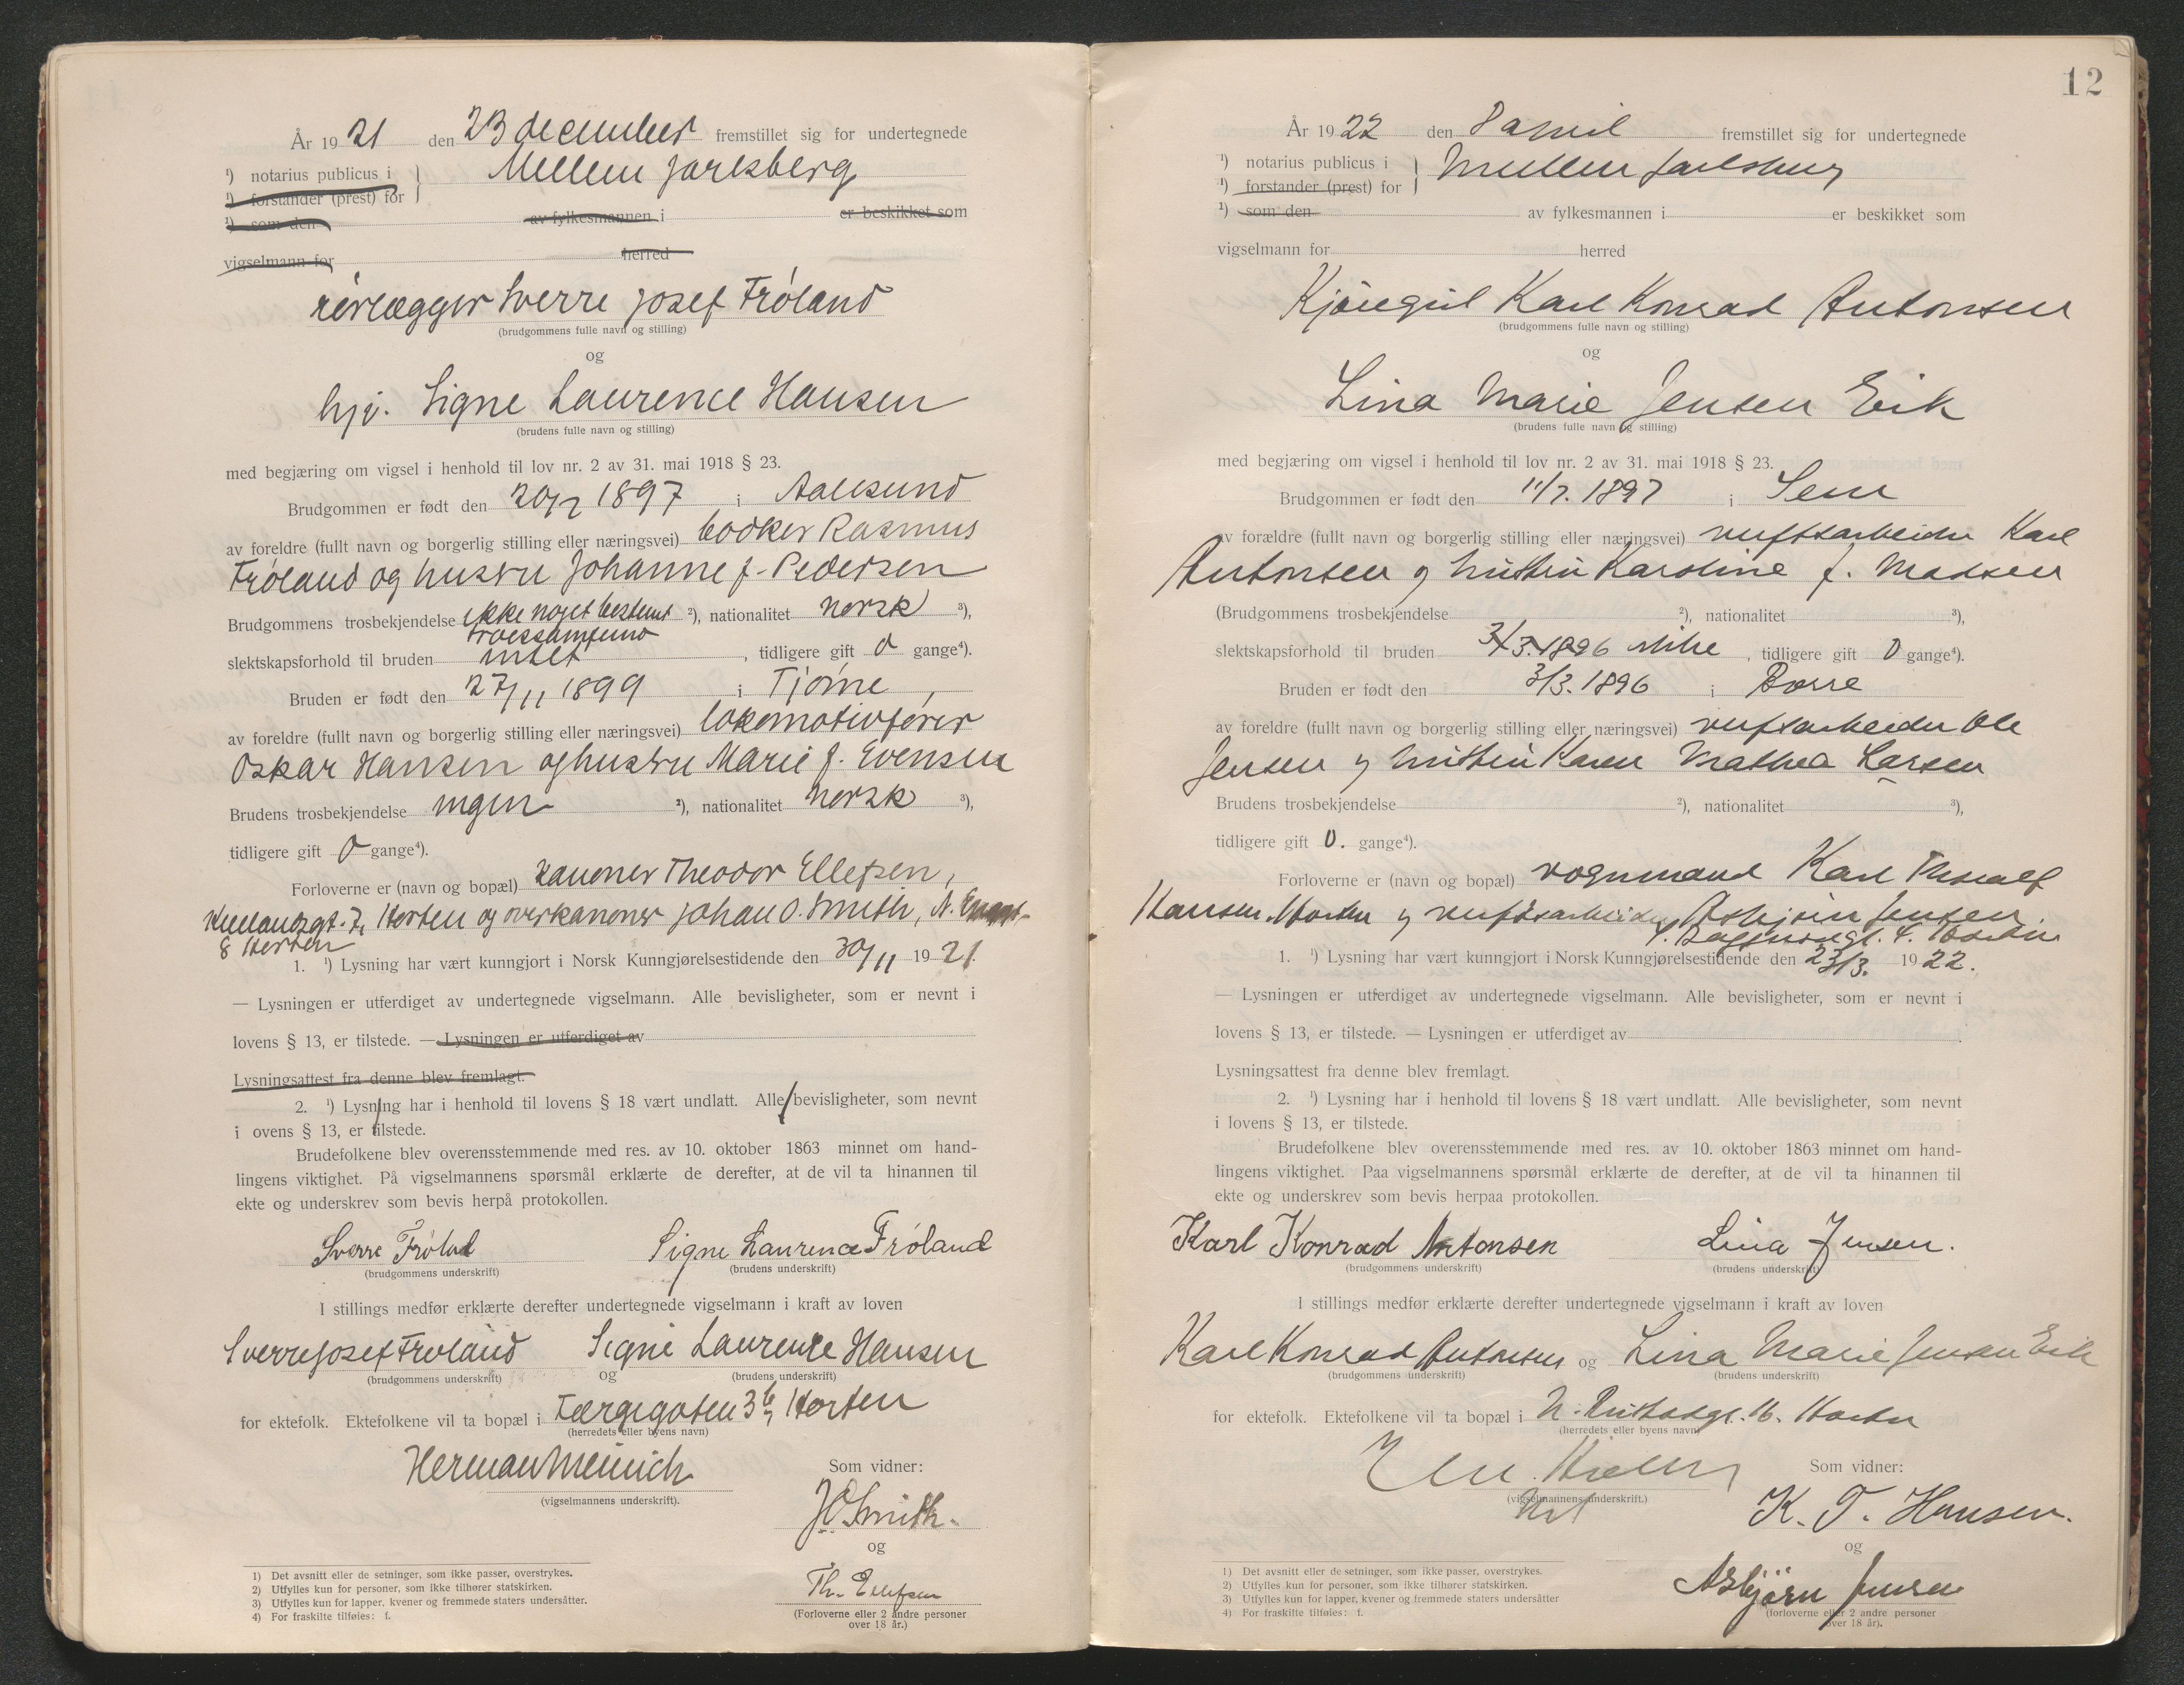 År 19 21 den 23 december fremstillet sig for undertegnede
¹) notarius publicus i } Mellem Jarlsberg
¹) forstander (prest) for
¹) som den av fylkesmannen i er beskikket som
vigselmann for herred
rørlægger Sverre Josef Frøland
(brudgommens fulle navn og stilling)
og
hji. Signe Laurence Hansen
(brudens fulle navn og stilling)
med begjæring om vigsel i henhold til lov nr. 2 av 31. mai 1918 § 23.
Brudgommen er født den 20/2 1897 i Aalesund
av foreldre (fullt navn og borgerlig stilling eller næringsvei) bødker Rasmus
Frøland og hustru Johanne f. Pedersen
Brudgommens trosbekjendelse ikke noget bestemt ²), nationalitet norsk ³),
troessamfund
slektskapsforhold til bruden intet, tidligere gift 0 gange⁴).
Bruden er født den 27/11 1899 i Tjøme,
av foreldre (fullt navn og borgerlig stilling eller næringsvei) lokomotivfører
Oskar Hansen og hustru Marie f. Evensen
Brudens trosbekjendelse ingen ²), nationalitet norsk ³),
tidligere gift 0 gange⁴).
Forloverne er (navn og bopæl) kanoner Theodor Ellefsen,
7, Horten og overkanoner Johan O. Smith, N.
8 Horten
1. ¹) Lysning har vært kunngjort i Norsk Kunngjørelsestidende den 30/11 19 21.
— Lysningen er utferdiget av undertegnede vigselmann. Alle bevisligheter, som er nevnt i
lovens § 13, er tilstede. — Lysningen er utferdiget av
Lysningsattest fra denne blev fremlagt.
2. ¹) Lysning har i henhold til lovens § 18 vært undlatt. Alle bevisligheter, som nevnt
i ovens § 13, er tilstede.
Brudefolkene blev overensstemmende med res. av 10. oktober 1863 minnet om hand-
lingens viktighet. På vigselmannens spørsmål erklærte de derefter, at de vil ta hinannen til
ekte og underskrev som bevis herpå protokollen.
Sverre Frøland Signe Laurence Frøland
(brudgommens underskrift) (brudens underskrift)
I stillings medfør erklærte derefter undertegnede vigselmann i kraft av loven
Sverre Josef Frøland og Signe Laurence Hansen
(brudgommens underskrift) (brudens underskrift)
for ektefolk. Ektefolkene vil ta bopæl i Færgegaten 36, Horten
(herredets eller byens navn)
Herman Meinich Som vidner:
(vigselmannens underskrift).
J O Smith.
og
Th. Ellefsen
(Forloverne eller 2 andre personer
over 18 år.)
1) Det avsnitt eller de setninger, som ikke passer, overstrykes.
2) Utfylles kun for personer, som ikke tilhører statskirken.
3) Utfylles kun for lapper, kvener og fremmede staters undersåtter.
4) For fraskilte tilføies: f.
12
År 19 22 den 8 april fremstillet sig for undertegnede
¹) notarius publicus i } Mellem Jarlsberg
¹) forstander (prest) for
¹) som den av fylkesmannen i er beskikket som
vigselmann for herred
Karl Konrad Antonsen
(brudgommens fulle navn og stilling)
og
Lina Marie Jensen Eik
(brudens fulle navn og stilling)
med begjæring om vigsel i henhold til lov nr. 2 av 31. mai 1918 § 23.
Brudgommen er født den 11/7. 1897 i Sem
av forældre (fullt navn og borgerlig stilling eller næringsvei) verftsarbeider Karl
Antonsen og hustru Karoline f. Madsen
(Brudgommens trosbekjendelse ²), nationalitet ³),
slektskapsforhold til bruden 3/3. 1896 , tidligere gift 0 gange⁴).
Bruden er født den 3/3. 1896 i Borre
av foreldre (fullt navn og borgerlig stilling eller næringsvei) verftsarbeider Ole
Jensen og hustru Karen Mathea Larsen
Brudens trosbekjendelse ²), nationalitet ³),
tidligere gift 0. gange⁴).
Forloverne er (navn og bopæl) vognmand Karl
Hansen. Horten og verftsarbeider Asbjørn Jensen.
4. Horten
1. ¹) Lysning har vært kunngjort i Norsk Kunngjørelsestidende den 23/3. 19 22.
— Lysningen er utferdiget av undertegnede vigselmann. Alle bevisligheter, som er nevnt i
lovens § 13, er tilstede. — Lysningen er utferdiget av
Lysningsattest fra denne blev fremlagt.
2. ¹) Lysning har i henhold til lovens § 18 vært undlatt. Alle bevisligheter, som nevnt
i lovens § 13, er tilstede.
Brudefolkene blev overensstemmende med res. av 10. oktober 1863 minnet om hand-
lingens viktighet. Paa vigselmannens spørsmål erklærte de derefter, at de vil ta hinannen til
ekte og underskrev som bevis herpaa protokollen.
Karl Konrad Antonsen Lina Jensen.
(brudgommens underskrift) (brudens underskrift)
I stillings medfør erklærte derefter undertegnede vigselmann i kraft av loven
Karl Konrad Antonsen og Lina Marie Jensen Eik
(brudgommens underskrift) (brudens underskrift)
for ektefolk. Ektefolkene vil ta bopæl i 16. Horten
(herredets eller byens navn)
Som vidner:
(vigselmannens underskrift.)
K. T. Hansen.
og
Asbjørn Jensen
(forloverne eller 2 andre personer
over 18 år).
1) Det avsnitt eller de setninger, som ikke passer, overstrykes.
2) Utfylles kun for personer, som ikke tilhører statskirken.
3) Utfylles kun for lapper, kvener og fremmede staters undersåtter
4) For fraskilte tilføies: f.